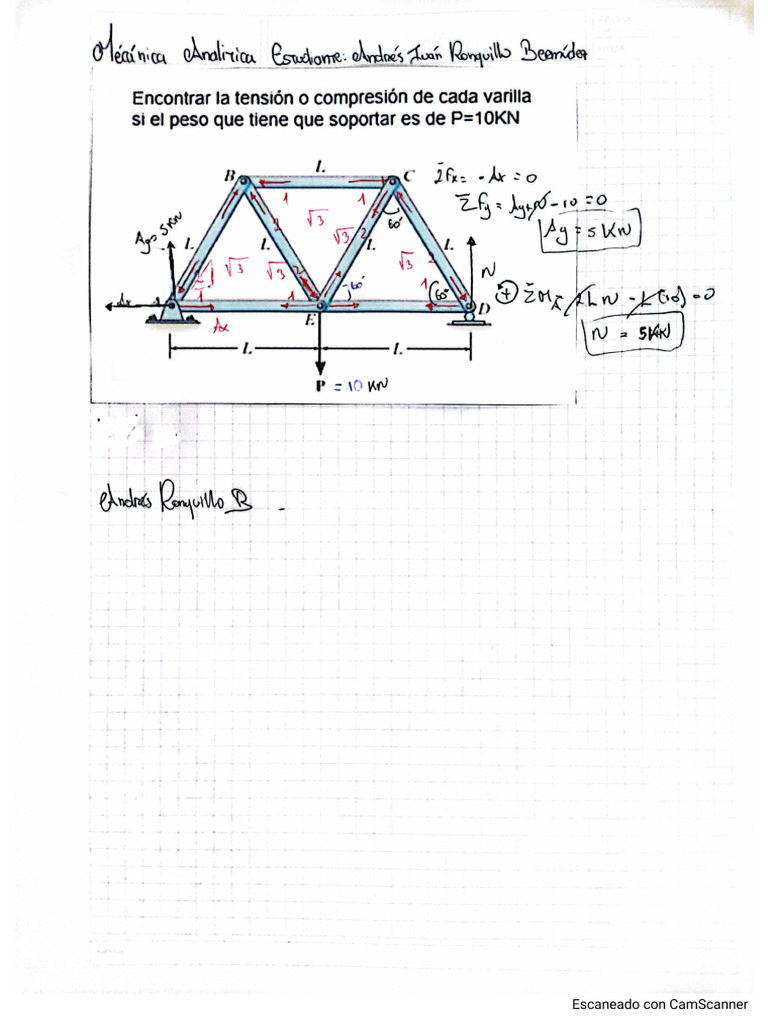 Mécánica Analítica Estudiante: Andrés Juán Ronquillo Bermúdez
Encontrar la tensión o compresión de cada varilla
si el peso que tiene que soportar es de P=10KN
B L C
ΣFx = -Ax = 0
ΣFy = Ay+N - 10 = 0
Ay = 5 KN
1 1
√3 √3 60°
Ay = 5KN
L 2 L 2 L L
√3 √3 √3
2 2 1 60° 60° N
Ax 1 1 1 D
ΣMA 2LN - L(10) = 0
N = 5KN
Ax E
L L
P = 10 KN
Andrés Ronquillo B
Escaneado con CamScanner